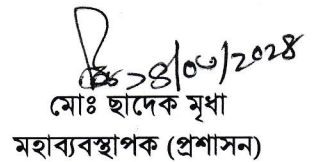 ১৪/০৩/২০২৪
মোঃ ছাদেক মৃধা
মহাব্যবস্থাপক (প্রশাসন)